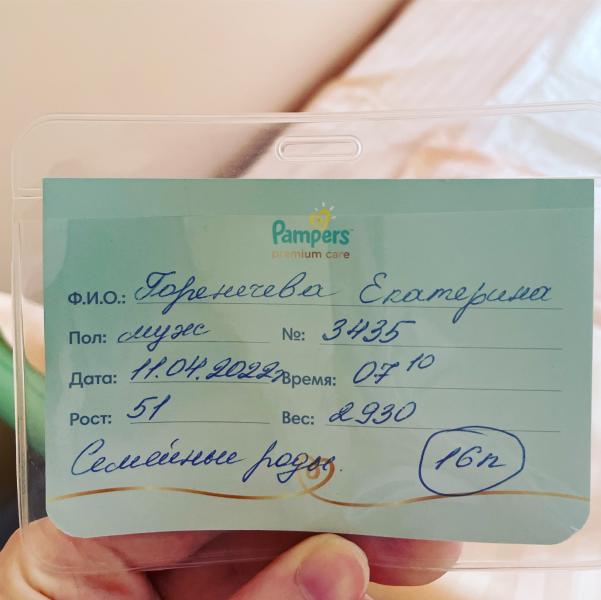 Pampers
premium care
Ф.И.О.: Горенечева Екатерина
Пол: муж №: 3435
Дата: 11.04.2022г Время: 07 10
Рост: 51 Вес: 2930
Семейные роды. 16п